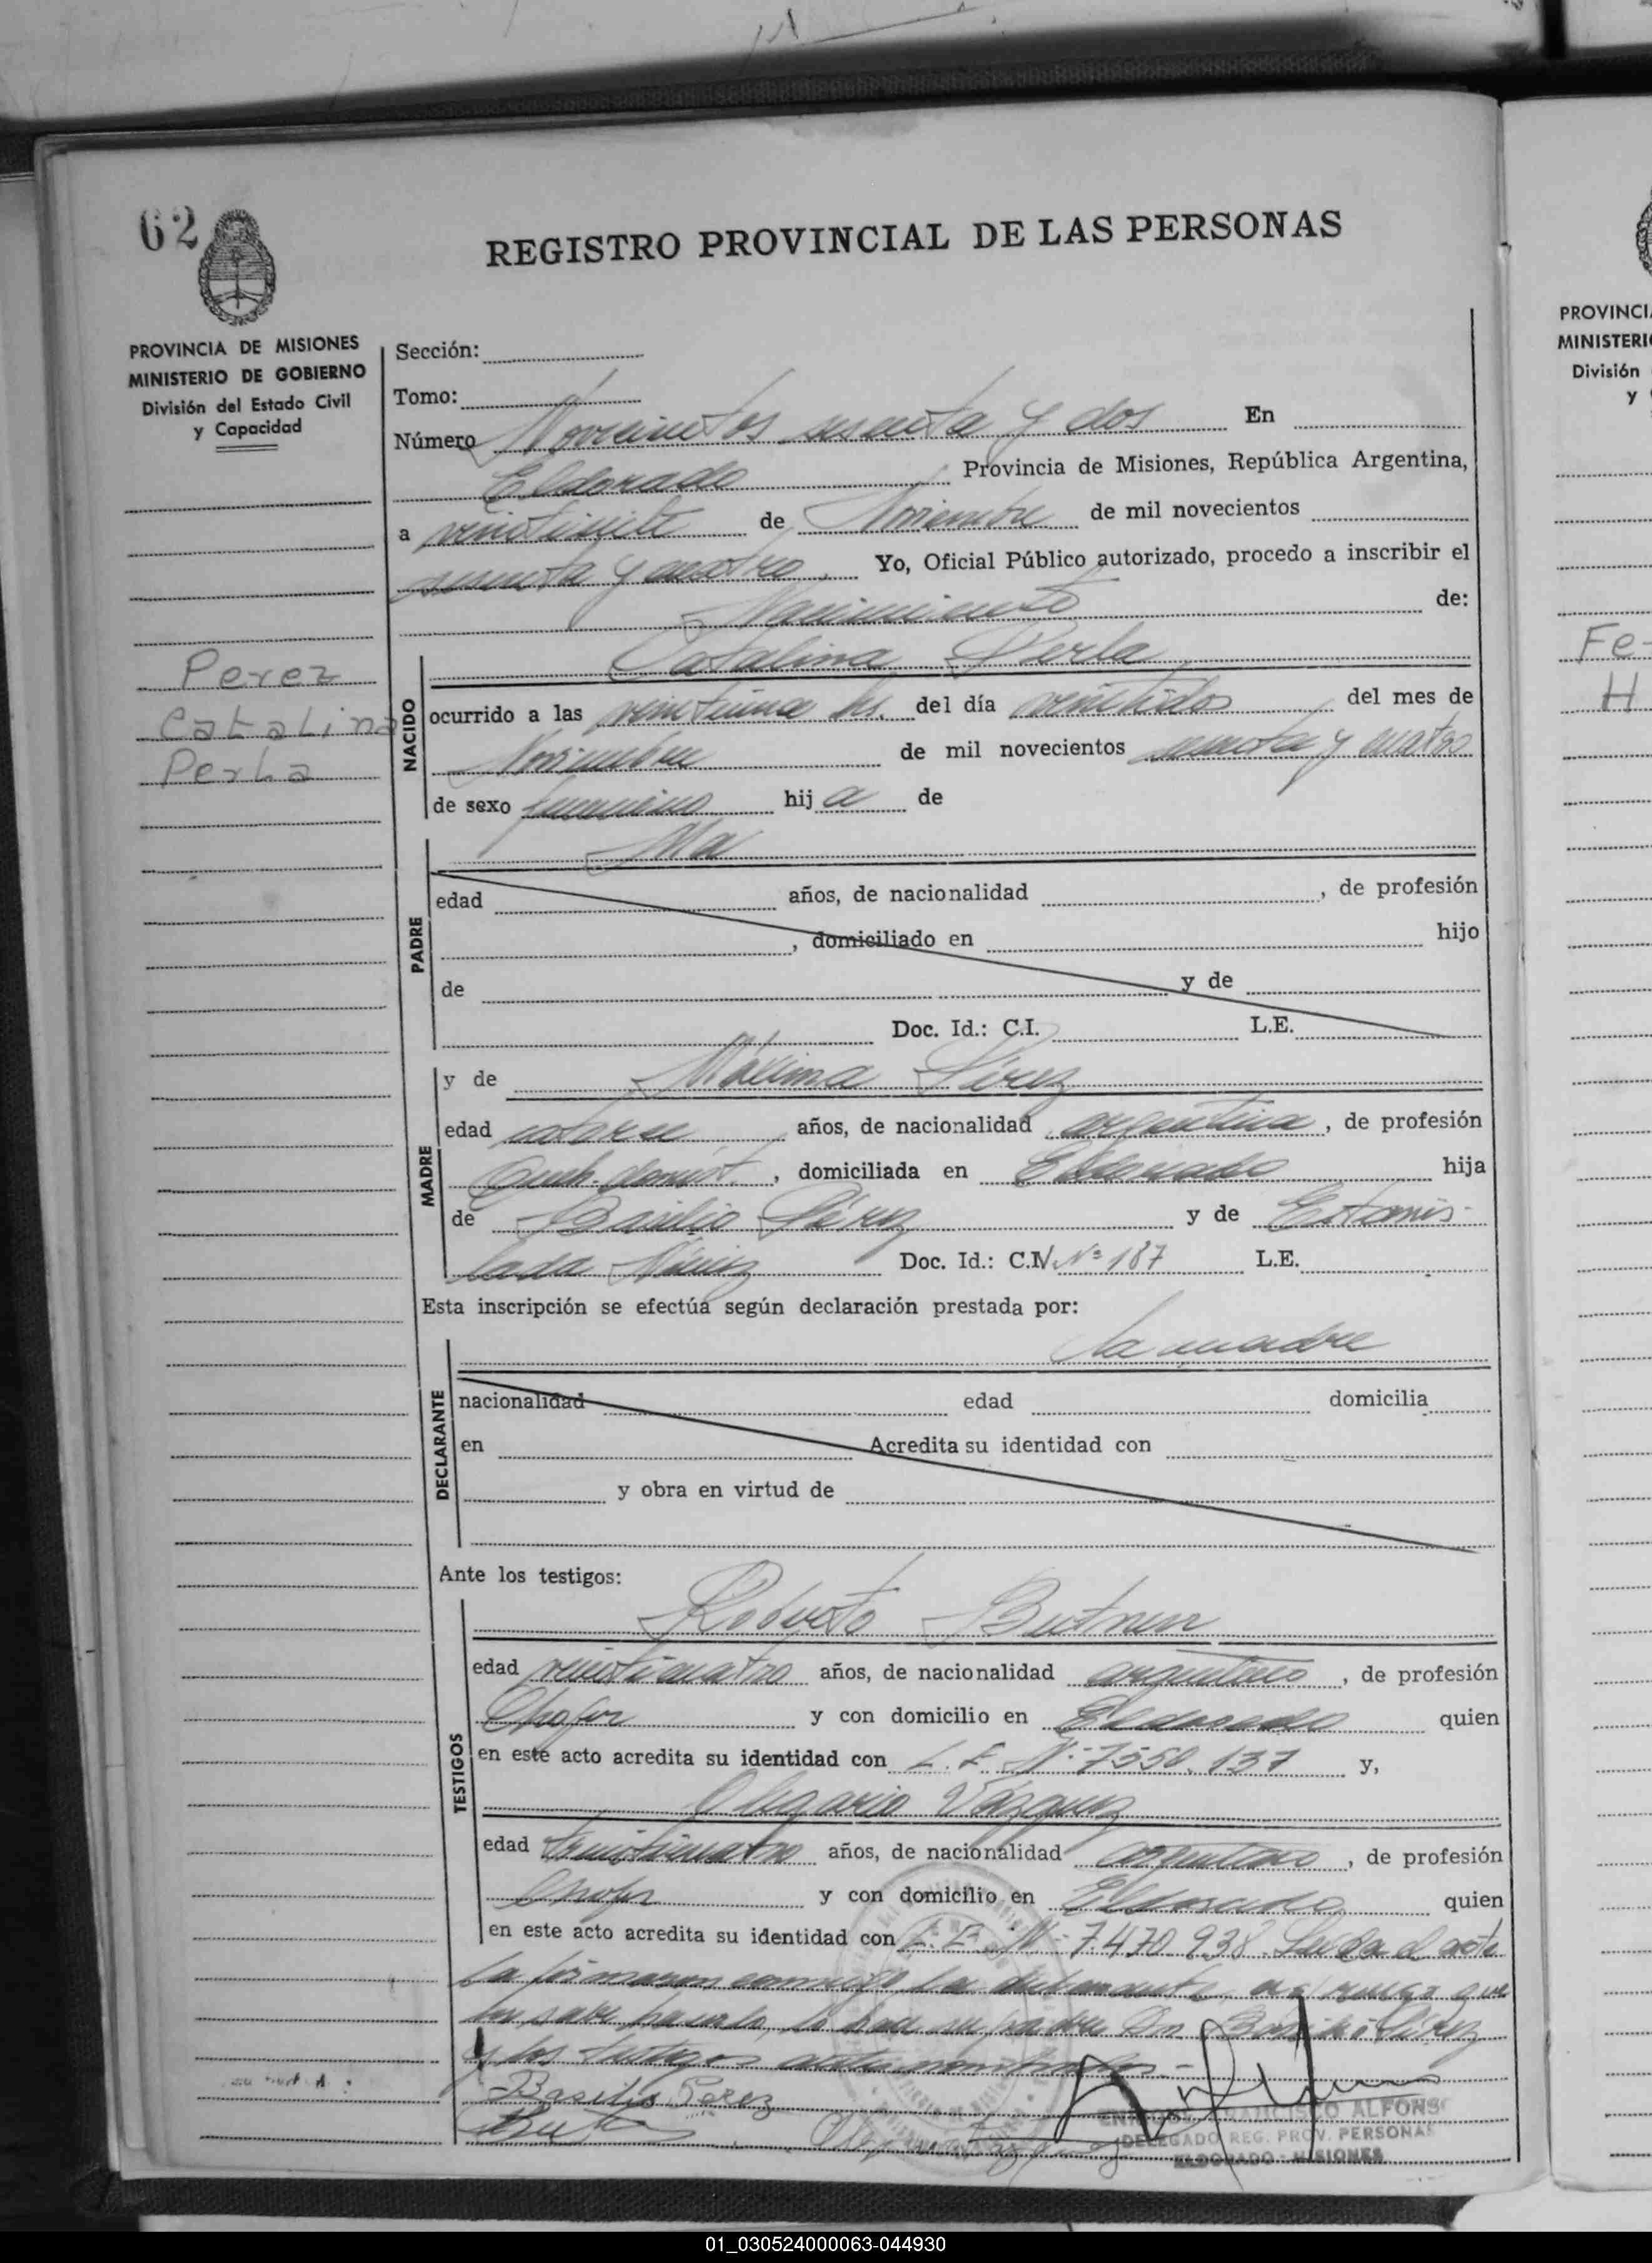 62
REGISTRO PROVINCIAL DE LAS PERSONAS
PROVINCIA DE MISIONES
MINISTERIO DE GOBIERNO
División del Estado Civil
y Capacidad
Perez
Catalina
Perla
Sección:
Tomo:
Número Novecientos sesenta y dos En
Eldorado Provincia de Misiones, República Argentina,
a veintisiete de Noviembre de mil novecientos
sesenta y cuatro. Yo, Oficial Público autorizado, procedo a inscribir el
Nacimiento de:
NACIDO
Catalina Perla
ocurrido a las hs. del día veintidos del mes de
Noviembre de mil novecientos sesenta y cuatro
de sexo femenino hija de
PADRE
edad años, de nacionalidad , de profesión
, domiciliado en hijo
de y de
Doc. Id.: C.I. L.E.
MADRE
y de Máxima Pérez
edad catorce años, de nacionalidad argentina, de profesión
, domiciliada en Eldorado hija
de Basilio Pérez y de Estanis-
lada Doc. Id.: C.N. Nº 187 L.E.
Esta inscripción se efectúa según declaración prestada por:
la madre
DECLARANTE
nacionalidad edad domicilia
en Acredita su identidad con
y obra en virtud de
Ante los testigos:
TESTIGOS
Roberto
edad veinticuatro años, de nacionalidad argentino, de profesión
Chofer y con domicilio en Eldorado quien
en este acto acredita su identidad con L.E. Nº 7550.137 y,
Olegario Vázquez
edad años, de nacionalidad argentino, de profesión
Chofer y con domicilio en Eldorado quien
en este acto acredita su identidad con L.E. Nº 7.470.938. Leida el acta
la firmaron conmigo la declarante, a ruego que
no sabe hacerlo, lo hace su padre Dn. Basilio Pérez
y los testigos antes nombrados.-
Basilio Perez
ENRIQUE FRANCISCO ALFONSO
DELEGADO REG. PROV. PERSONAS
ELDORADO - MISIONES
PROVINCI
MINISTERI
División
y
Fe-
H
01_030524000063-044930